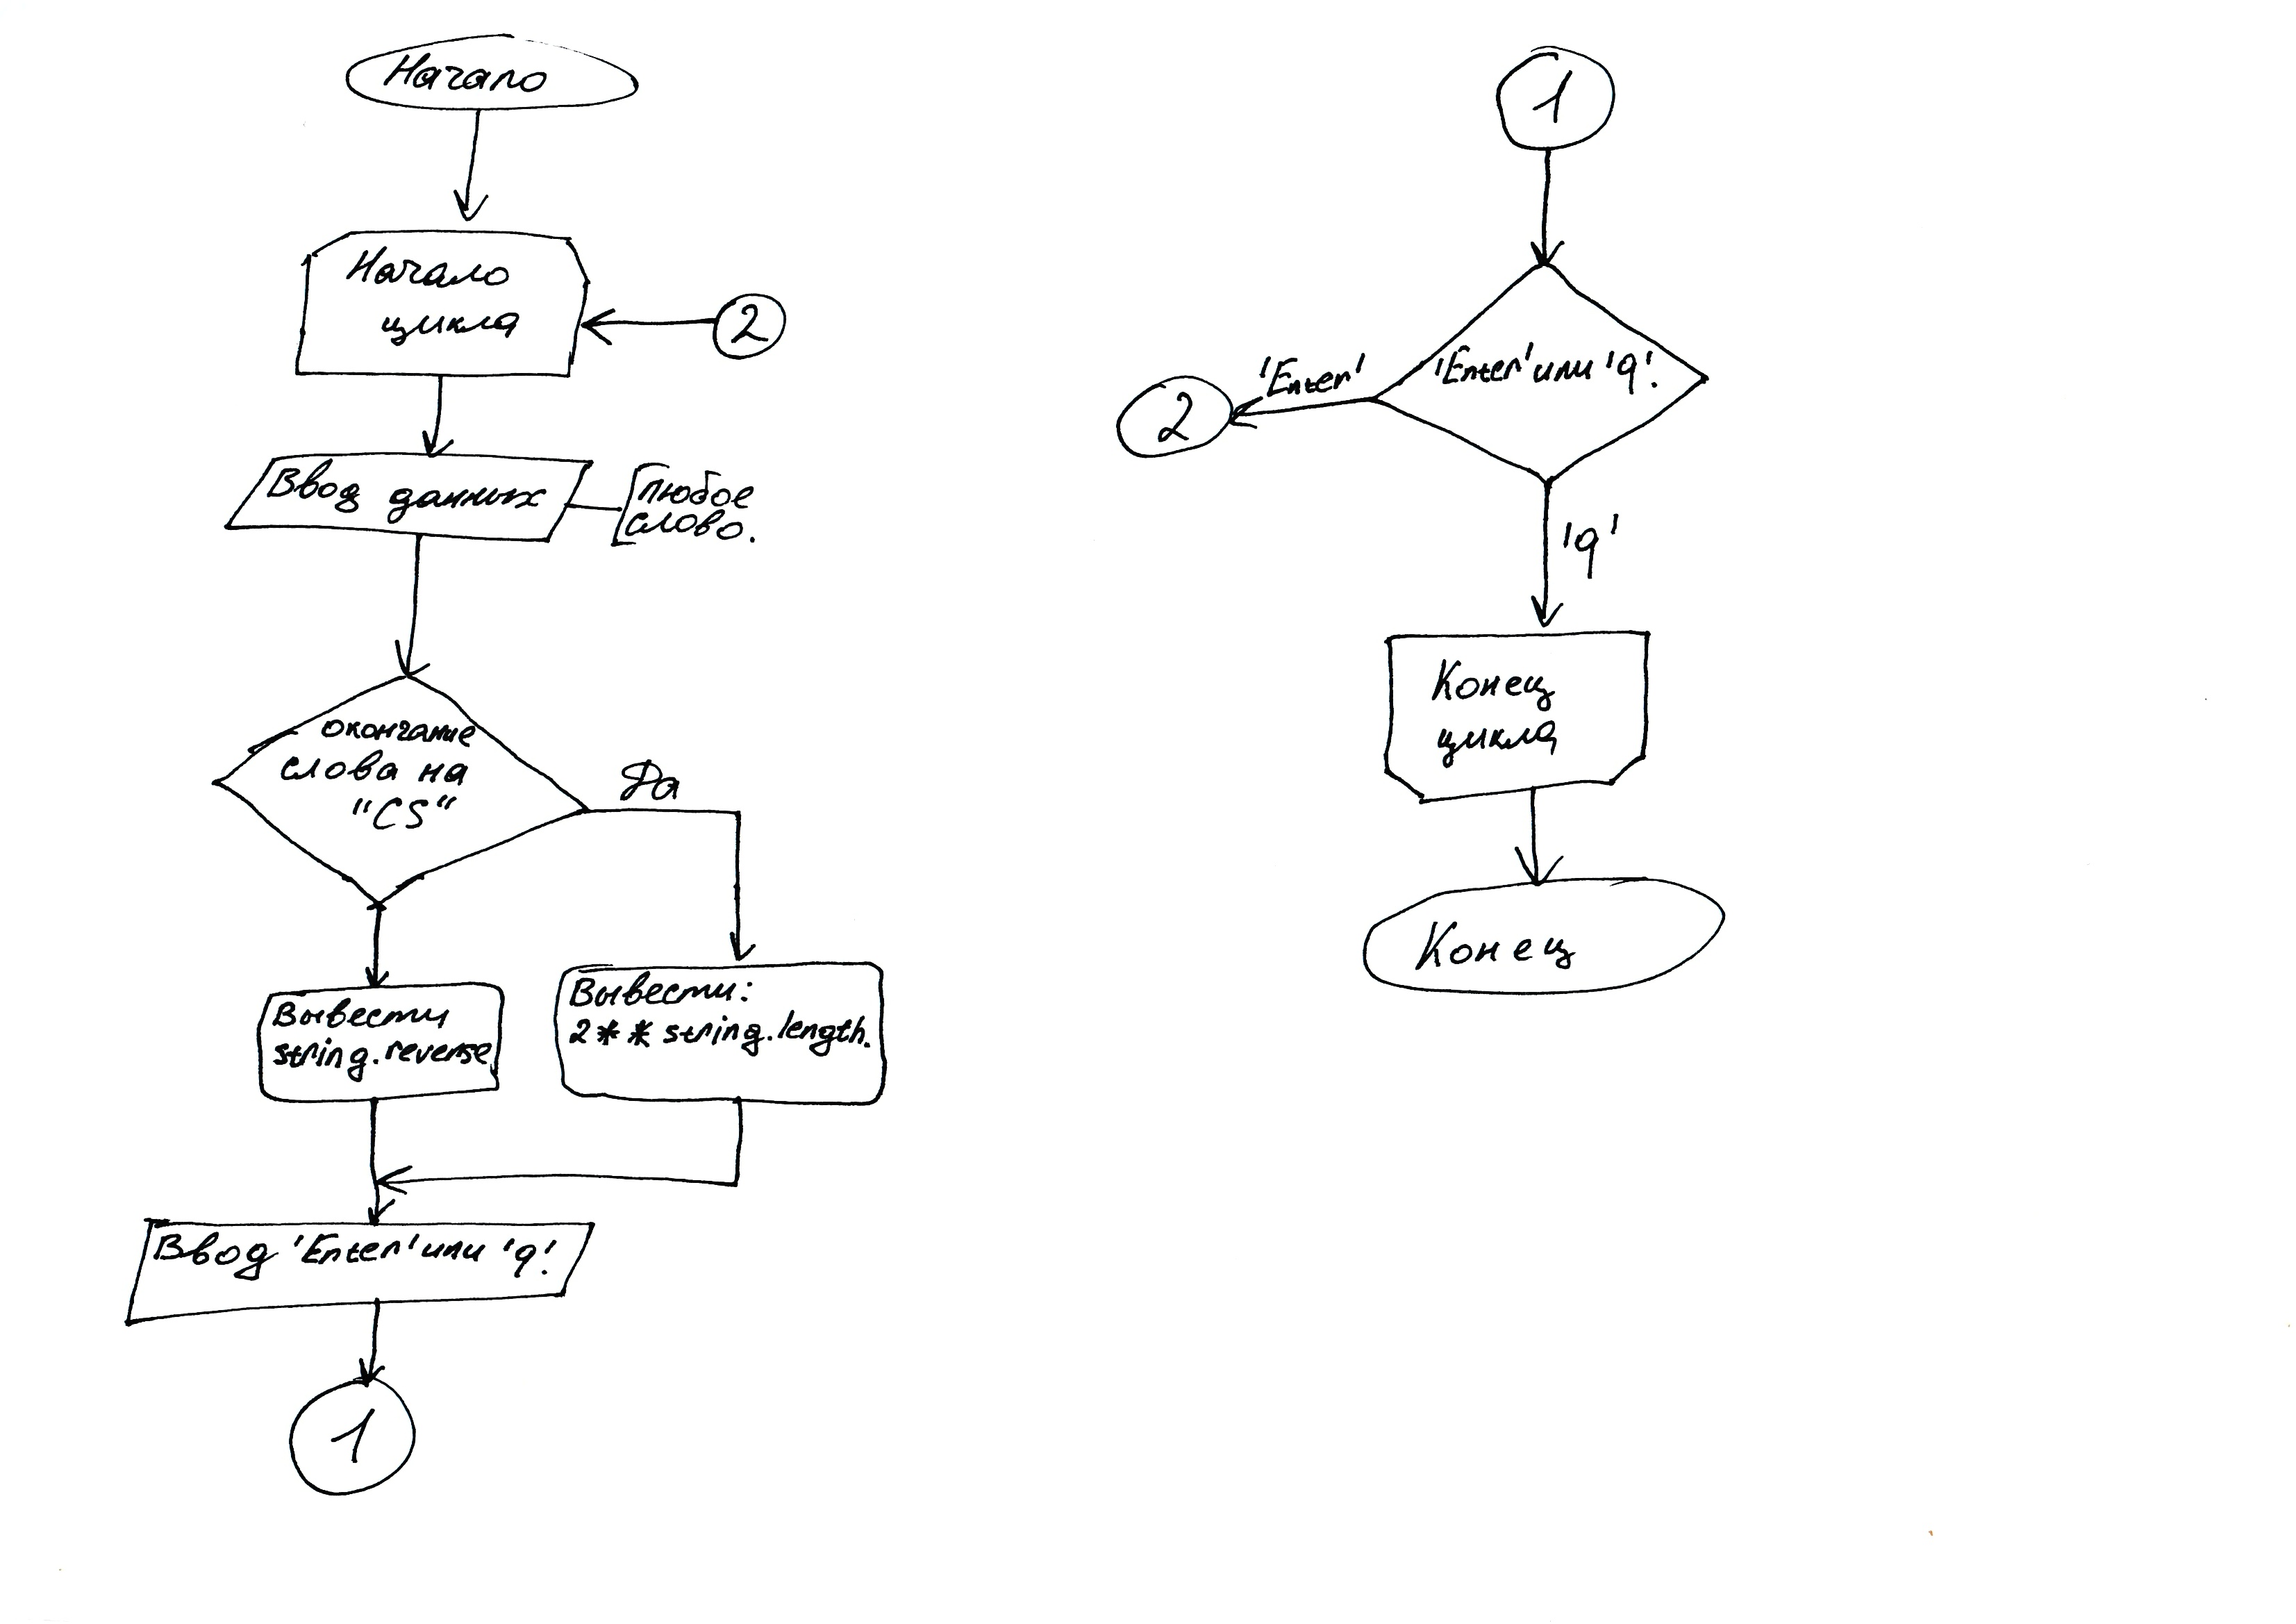 Начало
Начало
цикла
2
Ввод данных
любое
слово.
окончание
слова на
"CS"
Да
Вывести
string.reverse
Вывести:
2** string.length.
Ввод 'Enter' или 'q'.
1
1
'Enter' или 'q'.
'Enter'
2
'q'
Конец
цикла
Конец